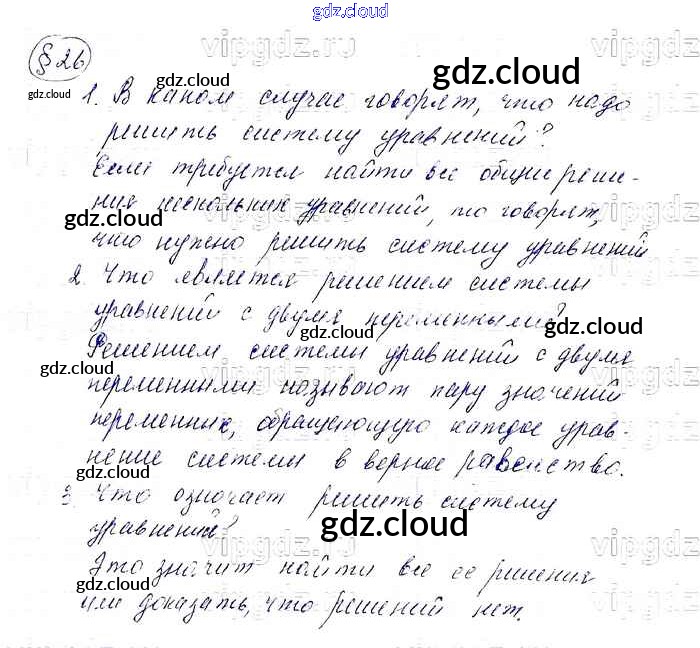 gdz.cloud
§ 26
1. В каком случае говорят, что надо
решить систему уравнений?
Если требуется найти все общие реше-
ния нескольких уравнений, то говорят,
что нужно решить систему уравнений
2. Что является решением системы
уравнений с двумя переменными?
Решением системы уравнений с двумя
переменными называют пару значений
переменных, обращающую каждое урав-
нение системы в верное равенство.
3. Что означает решить систему
уравнений?
Это значит найти все ее решения
или доказать, что решений нет.
vipgdz.ru
gdz.cloud